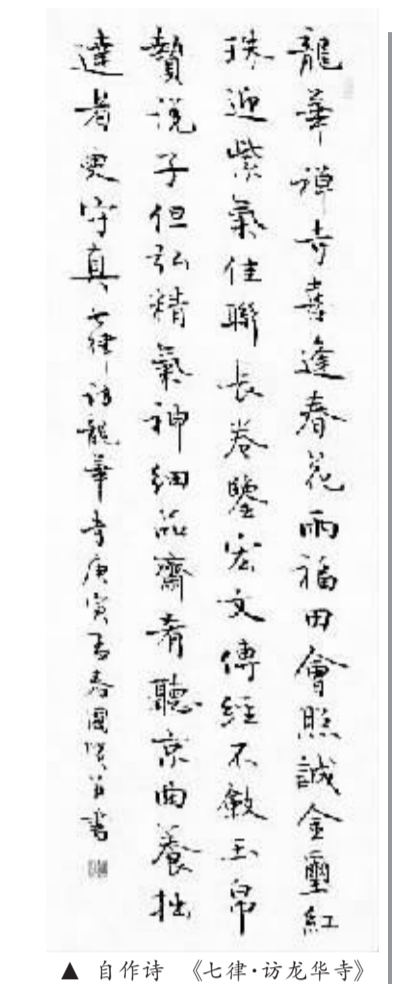 龍華禪寺喜逢春花雨福田會照誠金璽紅
珠迎紫氣佳聯長卷鑒宏文傳經不斂玉帛
贊說子但弘精氣神細品齋肴聽京曲養拙
達者更守真七律訪龍華寺庚寅孟春國賢並書
▲ 自作诗 《七律·访龙华寺》